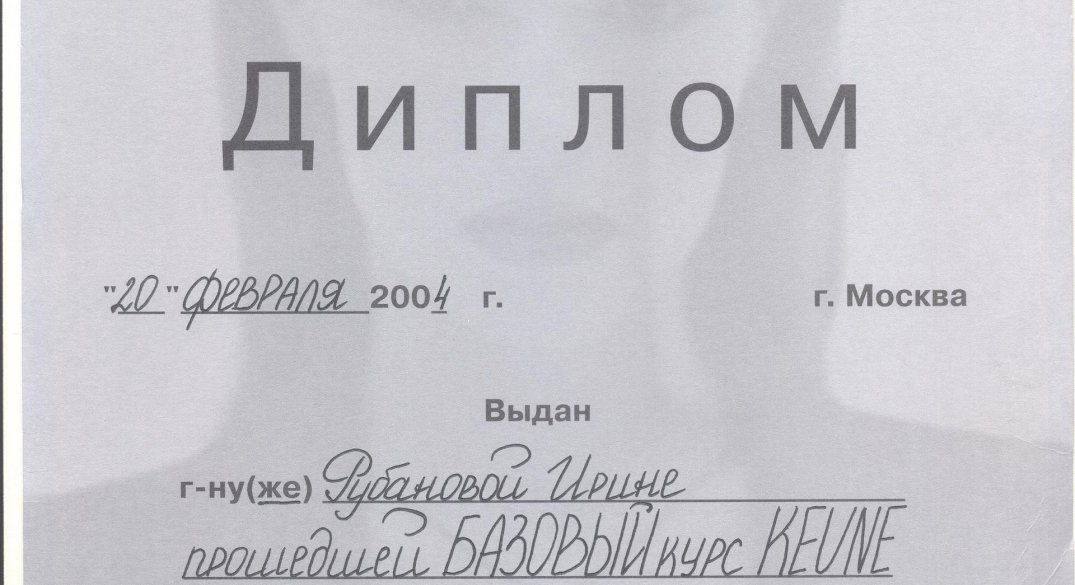 Диплом
"20" ФЕВРАЛЯ 2004 г. г. Москва
Выдан
г-ну(же) Рубановой Ирине
прошедшей БАЗОВЫЙ курс KEUNE